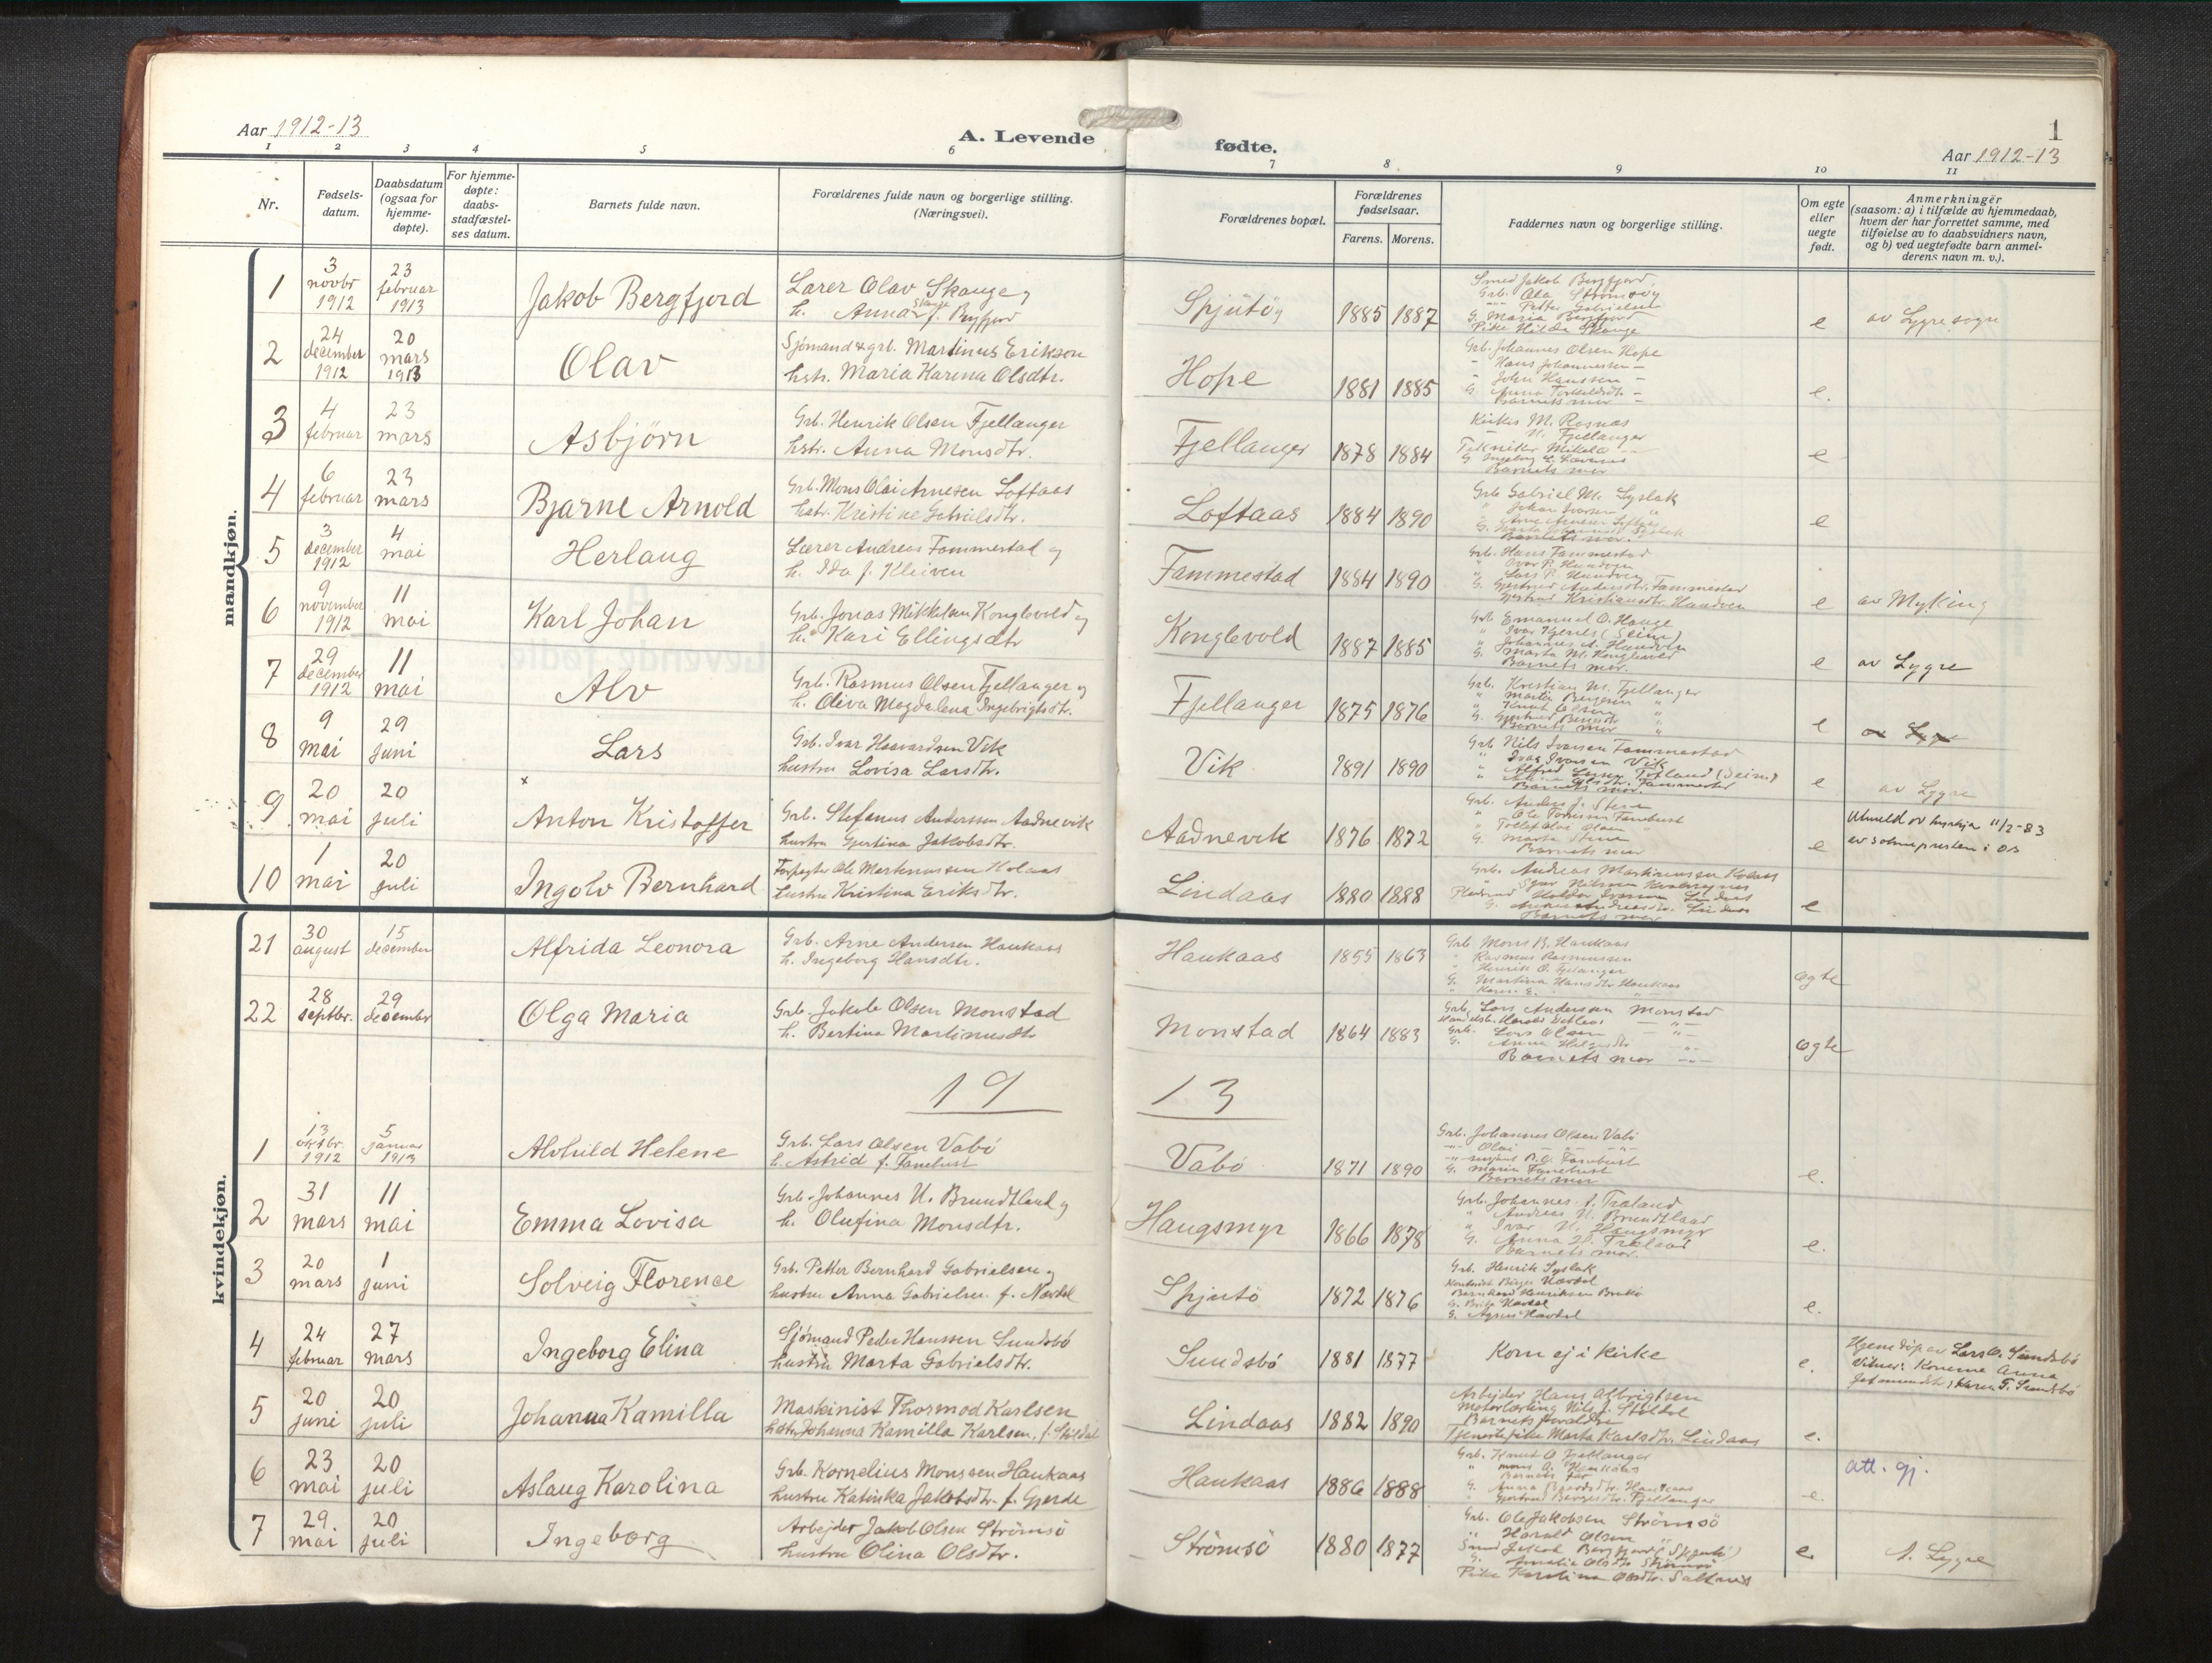 Aar 1912-13
A. Levende
fødte.
1
Aar 1912-13
1 2 3 4 5 6 7 8 9 10 11
Nr.
Fødsels-
datum.
Daabsdatum
(ogsaa for
hjemme-
døpte).
For hjemme-
døpte:
daabs-
stadfæstel-
ses datum.
Barnets fulde navn.
Forældrenes fulde navn og borgerlige stilling.
(Næringsvei).
Forældrenes bopæl.
Forældrenes
fødselsaar.
Farens. Morens.
Faddernes navn og borgerlige stilling.
Om egte
eller
uegte
født.
Anmerkninger
(saasom: a) i tilfælde av hjemmedaab,
hvem der har forrettet samme, med
tilføielse av to daabsvidners navn,
og b) ved uegtefødte barn anmel-
derens navn m. v.).
mandkjøn.
1
3
novbr
1912
23
februar
1913
Jakob Bergfjord
Lærer Olav Skauge og
h. Anna Skauge f. Bergfjord
Spjutöy
1885 1887
Smed Jakob Bergfjord,
Grb. Ola Strømsöy
Petter Gabrielsen
G. Maria Bergfjord
Pike Hilda Skauge
e
av Lygre sogn
2
24
december
1912
20
mars
1913
Olav
Sjømand & grb. Martinus Erikson
hstr. Maria Karina Olsdtr.
Hope
1881 1885
Grb. Johannes Olsen Hope
- Hans Johannessen -
- John Hanssen -
G. Anna Torkelsdtr -
Barnets mor -
e.
3
4
februar
23
mars
Asbjørn
Grb. Henrik Olsen Fjellanger
hstr. Anna Monsdtr.
Fjellanger
1878 1884
Kirkes. M. Rosnæs
Fjellanger
Tekniker Mikal O
G Ingeborg L.
Barnets mor
e
4
6
februar
23
mars
Bjarne Arnold
Grb. Mons Olai Arnesen Loftaas
hstr. Kristine Gabrielsdtr.
Loftaas
1884 1890
Grb Gabriel M. Syslak
" Johan Ivarsen "
" Arne Arnesen Loftaas
G. Marta Syslak
Barnets mor.
e
5
3
december
1912
4
mai
Herlaug
Lærer Andreas Fammestad og
h. Ida f. Kleiven
Fammestad
1884 1890
Grb. Hans Fammestad
" Ivar P. Hundven
" Lars P. Hundven
G. Gjertrud Andersdtr. Fammestad
Gjertrud Kristiansdtr Hundven
e
av Myking
6
9
november
1912
11
mai
Karl Johan
Grb. Jonas Mikkelsen Konglevold og
h. Kari Ellingsdtr
Konglevold
1887 1885
Grb Emanuel O. Hauge
" Ivar (Seim)
" Johannes A. Hundven
G. Marta M. Konglevold
Barnets mor.
e
av Lygre
7
29
december
1912
11
mai
Alv
Grb. Rasmus Olsen Fjellanger og
h. Oliva Magdalena Ingebrigtsdtr.
Fjellanger
1875 1876
Grb. Kristian M. Fjellanger
" Martin Bergesen "
" Knut Olsen "
G. Gjertrud Bergesdtr "
Barnets mor "
e
8
9
mai
29
juni
Lars
Grb. Ivar Haavardsen Vik
hustru Lovisa Larsdtr.
Vik
1891 1890
Grb Nils Ivarsen Fammestad
" Ivar Ivarsen Vik
" Alfred Larsen Totland (Seim)
Anna Olsdtr. Fammestad
Barnets mor.
e
av Lygre
9
20
mai
20
juli
x
Anton Kristoffer
Grb. Stefanus Anderssen Aadnevik
hustru Gjertina Jakobsdtr.
Aadnevik
1876 1872
Grb. Anders J. Stena
" Ole Tomessen Fanebust
" Tollef Olai Olsen "
G. Marta Stena
Barnets mor
e
Utmeld av kyrkja 11/2-83
av soknepresten i Os
10
1
mai
20
juli
Ingolv Bernhard
Forpagter Ole Martinussen Kolaas
hustru Kristina Eriksdtr.
Lindaas
1880 1888
Grb. Andreas Martinussen Kolaas
Nilssen
Halvor Ivarsen Lindaas
G. Anna Andreasdtr. Lindaas
Barnets mor
e
21
30
august
15
december
Alfrida Leonora
Grb. Arne Andersen Haukaas
h. Ingeborg Hansdtr.
Haukaas
1855 1863
Grb Mons B. Haukaas
" Rasmus Rasmussen
" Henrik O. Fjelanger
G. Martina Hansdtr Haukaas
" Karen E. "
ægte
22
28
septbr.
29
december
Olga Maria
Grb. Jakob Olsen Monstad
h. Bertina Martinusdtr
Monstad
1864 1883
Grb. Lars Andersen Monstad
Handelsb. Harald Detlevs — " —
Grb. Lars Olsen — " —
G. Anna Helgesdtr — " —
Barnets mor — " —
ægte
19 13
kvindekjøn.
1
13
oktbr.
1912
5
januar
1913
Alvhild Helene
Grb. Lars Olsen Vabö
h. Astrid f. Fanebust
Vabö
1871 1890
Grb. Johannes Olsen Vabö
—"— Olai —"—
—"— B. O. Fanebust
G. Maria Fanebust
Barnets mor
e.
2
31
mars
11
mai
Emma Lovisa
Grb. Johannes N. Brundtland og
h. Olufina Monsdtr.
Haugsmyr
1866 1878
Grb. Johannes I. Træland
" Andreas N. Brundtland
" Ivar N. Haugsmyr
G. Anna H. Træland
Barnets mor.
e.
3
20
mars
1
juni
Solveig Florence
Grb. Petter Bernhard Gabrielsen og
hustru Anna Gabrielsen f. Nævdal
Spjutö
1872 1876
Grb. Henrik Syslak
Kontorist Birger Nævdal
Bernhard Henriksen Brakö
G. Brita Nævdal
G. Agnes Nævdal
e.
4
24
februar
27
mars
Ingeborg Elina
Sjømand Peder Hanssen Sundsbö
hustru Marta Gabrielsdtr.
Sundsbö
1881 1877
Kom ej i kirke
e.
Hjemedöp av Lars O. Sundsbö
Vitner: Konerne Anna
Jetmundsdtr & Karen T. Sundsbö
5
20
juni
20
juli
Johanna Kamilla
Maskinist Thormod Karlsen
hstr. Johanna Kamilla Karlsen, f. Stildal
Lindaas
1882 1890
Arbejder Hans Albrigtsen
Motorlærling Nils J. Stildal
Barnets forældre
Tjenestepike Marta Karlsdtr. Lindaas
e.
6
23
mai
20
juli
Aslaug Karolina
Grb. Kornelius Monssen Haukaas
hustru Katinka Jakobsdtr. f. Gjerde
Haukaas
1886 1888
Grb. Knut O Fjellanger
" Mons A. Haukaas
Barnets far
G. Anna Haukaas
Gjertrud Bergesdtr. Fjellanger
e.
att. gj.
7
29.
mai
20
juli
Ingeborg
Arbejder Jakob Olsen Strömsö
hustru Olina Olsdtr.
Strömsö
1880 1877
Grb. Ole Jakobsen Strömsö
" Harald Olsen
Smed Jakob Bergfjord (Spjutö)
G. Amalia Olsdtr Strömsö
Pike Karolina Olsdtr.
e.
A. Lygre